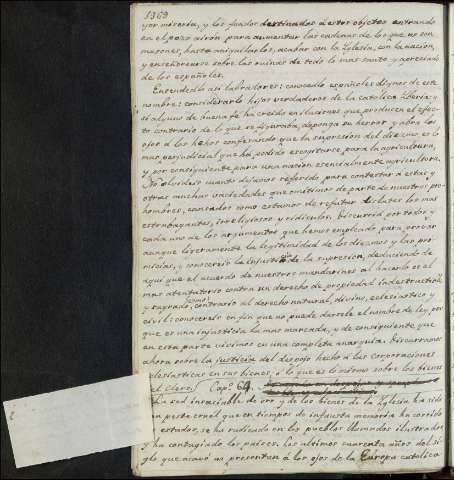 1369
yor miseria, y los fondos destinados á estos objetos entrando
en el pozo airon para aumentar las cadenas de los que no son
masones, hasta aniquilarlos, acabar con la Iglesia, con la nacion,
y enseñorearse sobre las ruinas de todo lo mas santo y apreciado
de los españoles.
Entendedlo asi labradores: conocedlo españoles dignos de este
nombre: consideradlo hijos verdaderos de la catolica Iberia y
si alguno de buena fe ha creido en ilusiones que producen el efec-
to contrario de lo que se figuraba, deponga su herror y abra los
ojos á los hechos confesando que la supresion del diezmo es lo
mas perjudicial que ha podido escogitarse para la agricultura,
y por consiguiente para una nacion esencialmente agricultora.
No olvideis cuanto dejamos referido para contestar á estas y
otras muchas vaciedades que omitimos de parte de nuestros pro-
hombres, cansados como estamos de refutar á las mas
estrabagantes, irreligiosas y ridiculas. Discurrid por todos y
cada uno de los argumentos que hemos empleado para probar
aunque ligeramente la legitimidad de los diezmos y las pri-
micias, y conocereis la injusticia de la supresion, deduciendo de
aqui que el acuerdo de nuestros mandarines al hacerlo es el
mas atentatorio contra un derecho de propiedad indestructible
y sagrado, como contrario al derecho natural, divino, eclesiastico y
civil: conocereis en fin que no puede darsele el nombre de ley, por
que es una injusticia la mas marcada, y de consiguiente que
en esta parte vivimos en una completa anarquia. Discurramos
ahora sobre la justicia del despojo hecho á las corporaciones
eclesiasticas en sus bienes, ó lo que es lo mismo sobre los bienes
del clero. Capº 64.
La sed insaciable de oro y de los bienes de la Iglesia ha sido
la peste cruel que en tiempos de infausta memoria ha corrido
los estados, se ha radicado en los pueblos llamados ilustrados
y ha contagiado los paises. Los ultimos cuarenta años del si-
glo que acabó nos presentan á los ojos de la Europa catolica